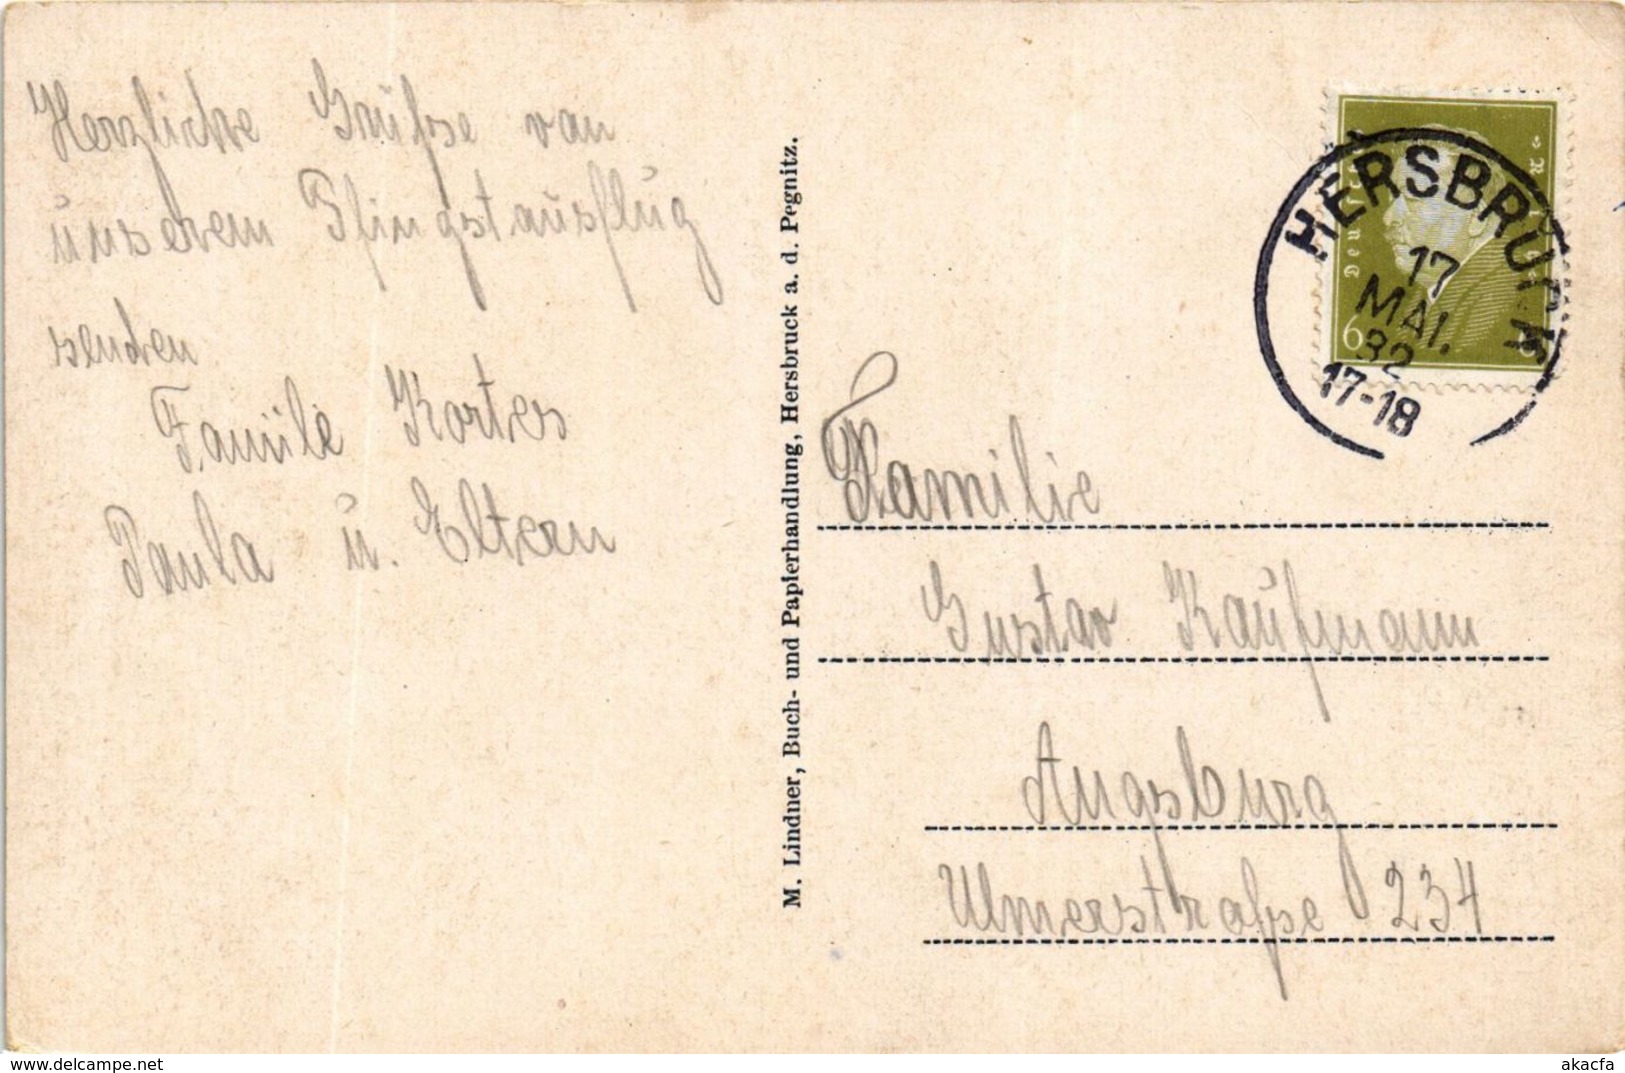 Herzliche Grüße von
unserem Pfingstausflug
senden
Familie Kortes
Paula u. Eltern
M. Lindner, Buch- und Papierhandlung, Hersbruck a. d. Pegnitz.
HERSBRUCK
17
MAI.
32
17-18
6
Familie
Gustav Kaufmann
Augsburg
Ulmerstraße 234
www.delcampe.net
akacfa